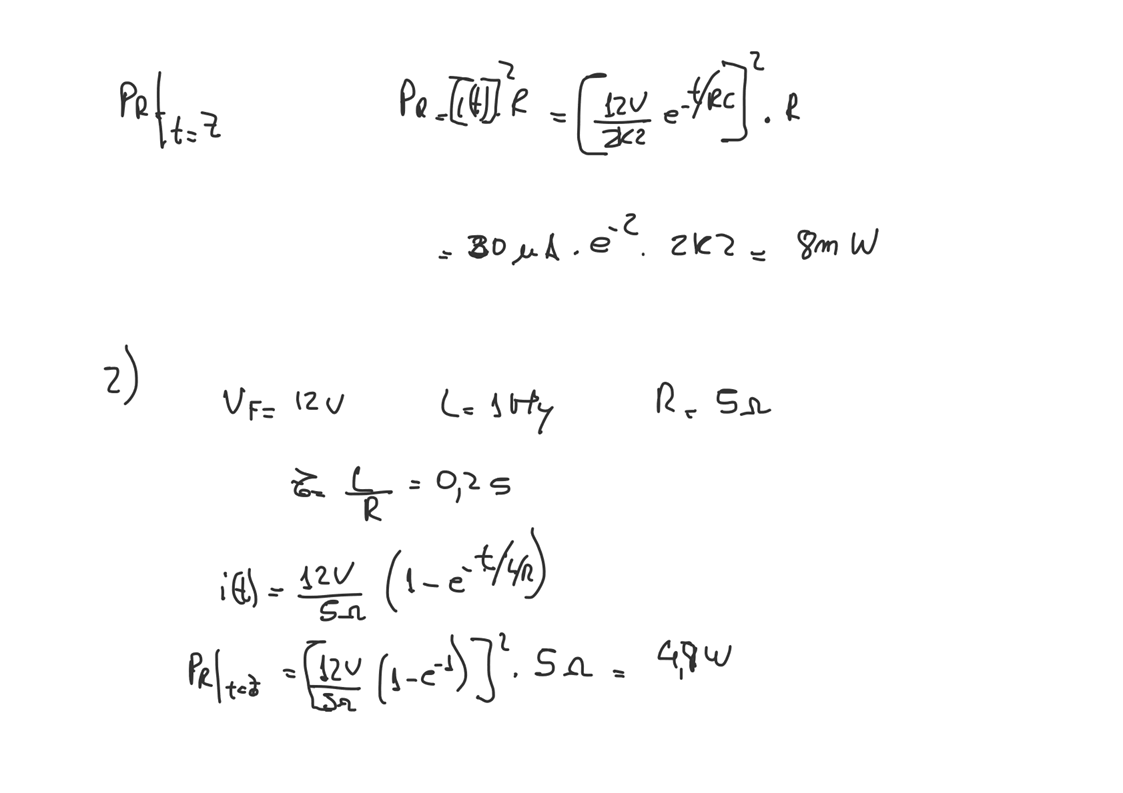 PR|t=z PR=[i(t)]²R = [12V/2K2 e^-t/RC]² . R
= 30 μA . e^-2 . 2K2 = 8m W
2) VF= 12V L= 1 Hy R= 5Ω
z= L/R = 0,2 s
i(t) = 12V/5Ω (1 - e^-t/L/R)
PR|t=z = [12V/5Ω (1 - e^-1)]² . 5Ω = W